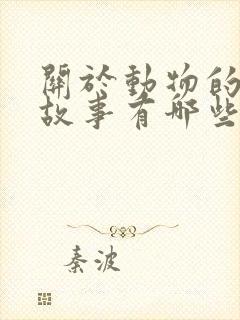 關於動物的
故事有哪些
秦波